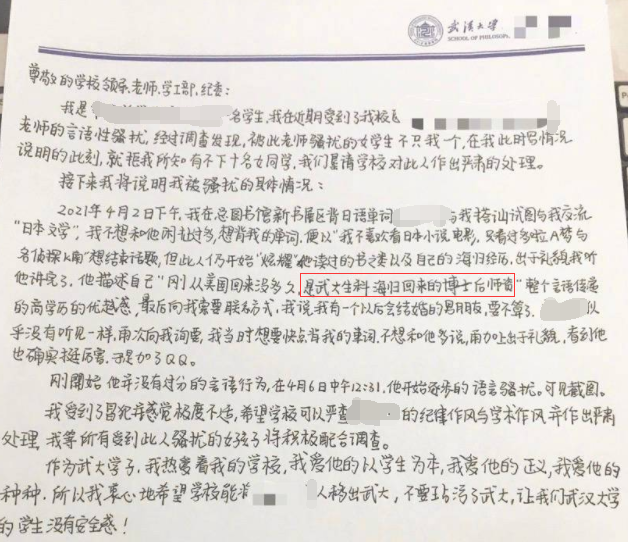 武汉大学
SCHOOL OF PHILOSOPH
尊敬的学校领导、老师、学工部、纪委:
我是 名学生,我在近期受到了我校
老师的言语性骚扰,经过调查发现,被此老师骚扰的女学生不只我一个,在我此时写情况
说明的此刻,就拒我所知有不下十名女同学,我们恳请学校对此人作出严肃的处理。
接下来我将说明我被骚扰的具体情况:
2021年4月2日下午,我在总图书馆新书展区背日语单词 与我搭讪试图与我交流
“日本文学”,我不想和他闲扯过多,想背我的单词,便以“我不喜欢看日本小说电影,只看过多啦A梦与
名侦探柯南”想结束话题,但此人仍开始“炫耀”他读过的书之类以及自己的海归经历,出于礼貌,我听
他讲完了。他描述自己“刚从美国回来没多久,是武大生科海归回来的博士后师资”整个言语传透
的高学历的优越感,最后向我索要联名方式,我说,我有一个以后会结婚的男朋友,要不算了。 以
乎没有听见一样,再次向我询要,我当时想要快点背我的单词,不想和他多说,再加上出于礼貌,看到他
也确实挺厉害,于是加了QQ。
刚开始他并没有过分的言语行为,在4月6日中午12:31,他开始逐步的语言骚扰。可见截图。
我受到了冒犯并感觉极度不适,希望学校可以严查 的纪律作风与学术作风并作出严肃
处理,我等所有受到此人骚扰的女孩子将积极配合调查。
作为武大学子,我热爱着我的学校,我爱他的以学生为本,我爱他的正义,我爱他的
种种。所以我衷心地希望学校能将 人移出武大,不要玷污了武大,让我们武汉大学
的学生没有安全感!